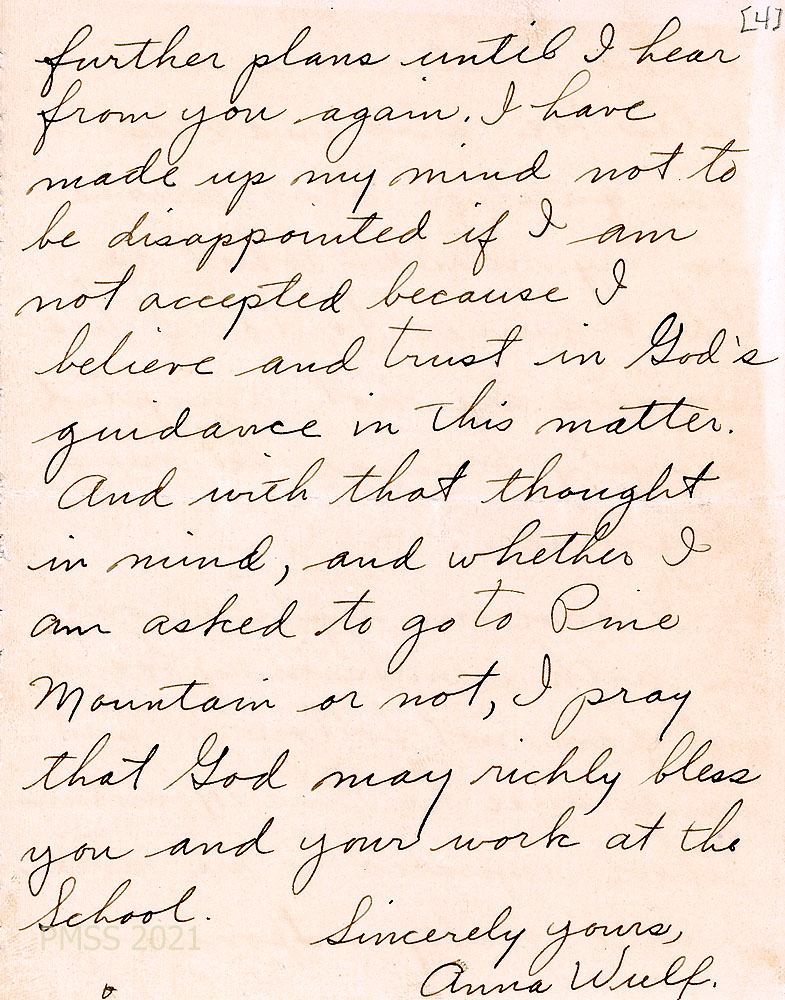 [4]
further plans until I hear
from you again. I have
made up my mind not to
be disappointed if I am
not accepted because I
believe and trust in God's
guidance in this matter.
And with that thought
in mind, and whether I
am asked to go to Pine
Mountain or not, I pray
that God may richly bless
you and your work at the
School.
PMSS 2021
Sincerely yours,
Anna Wulf.